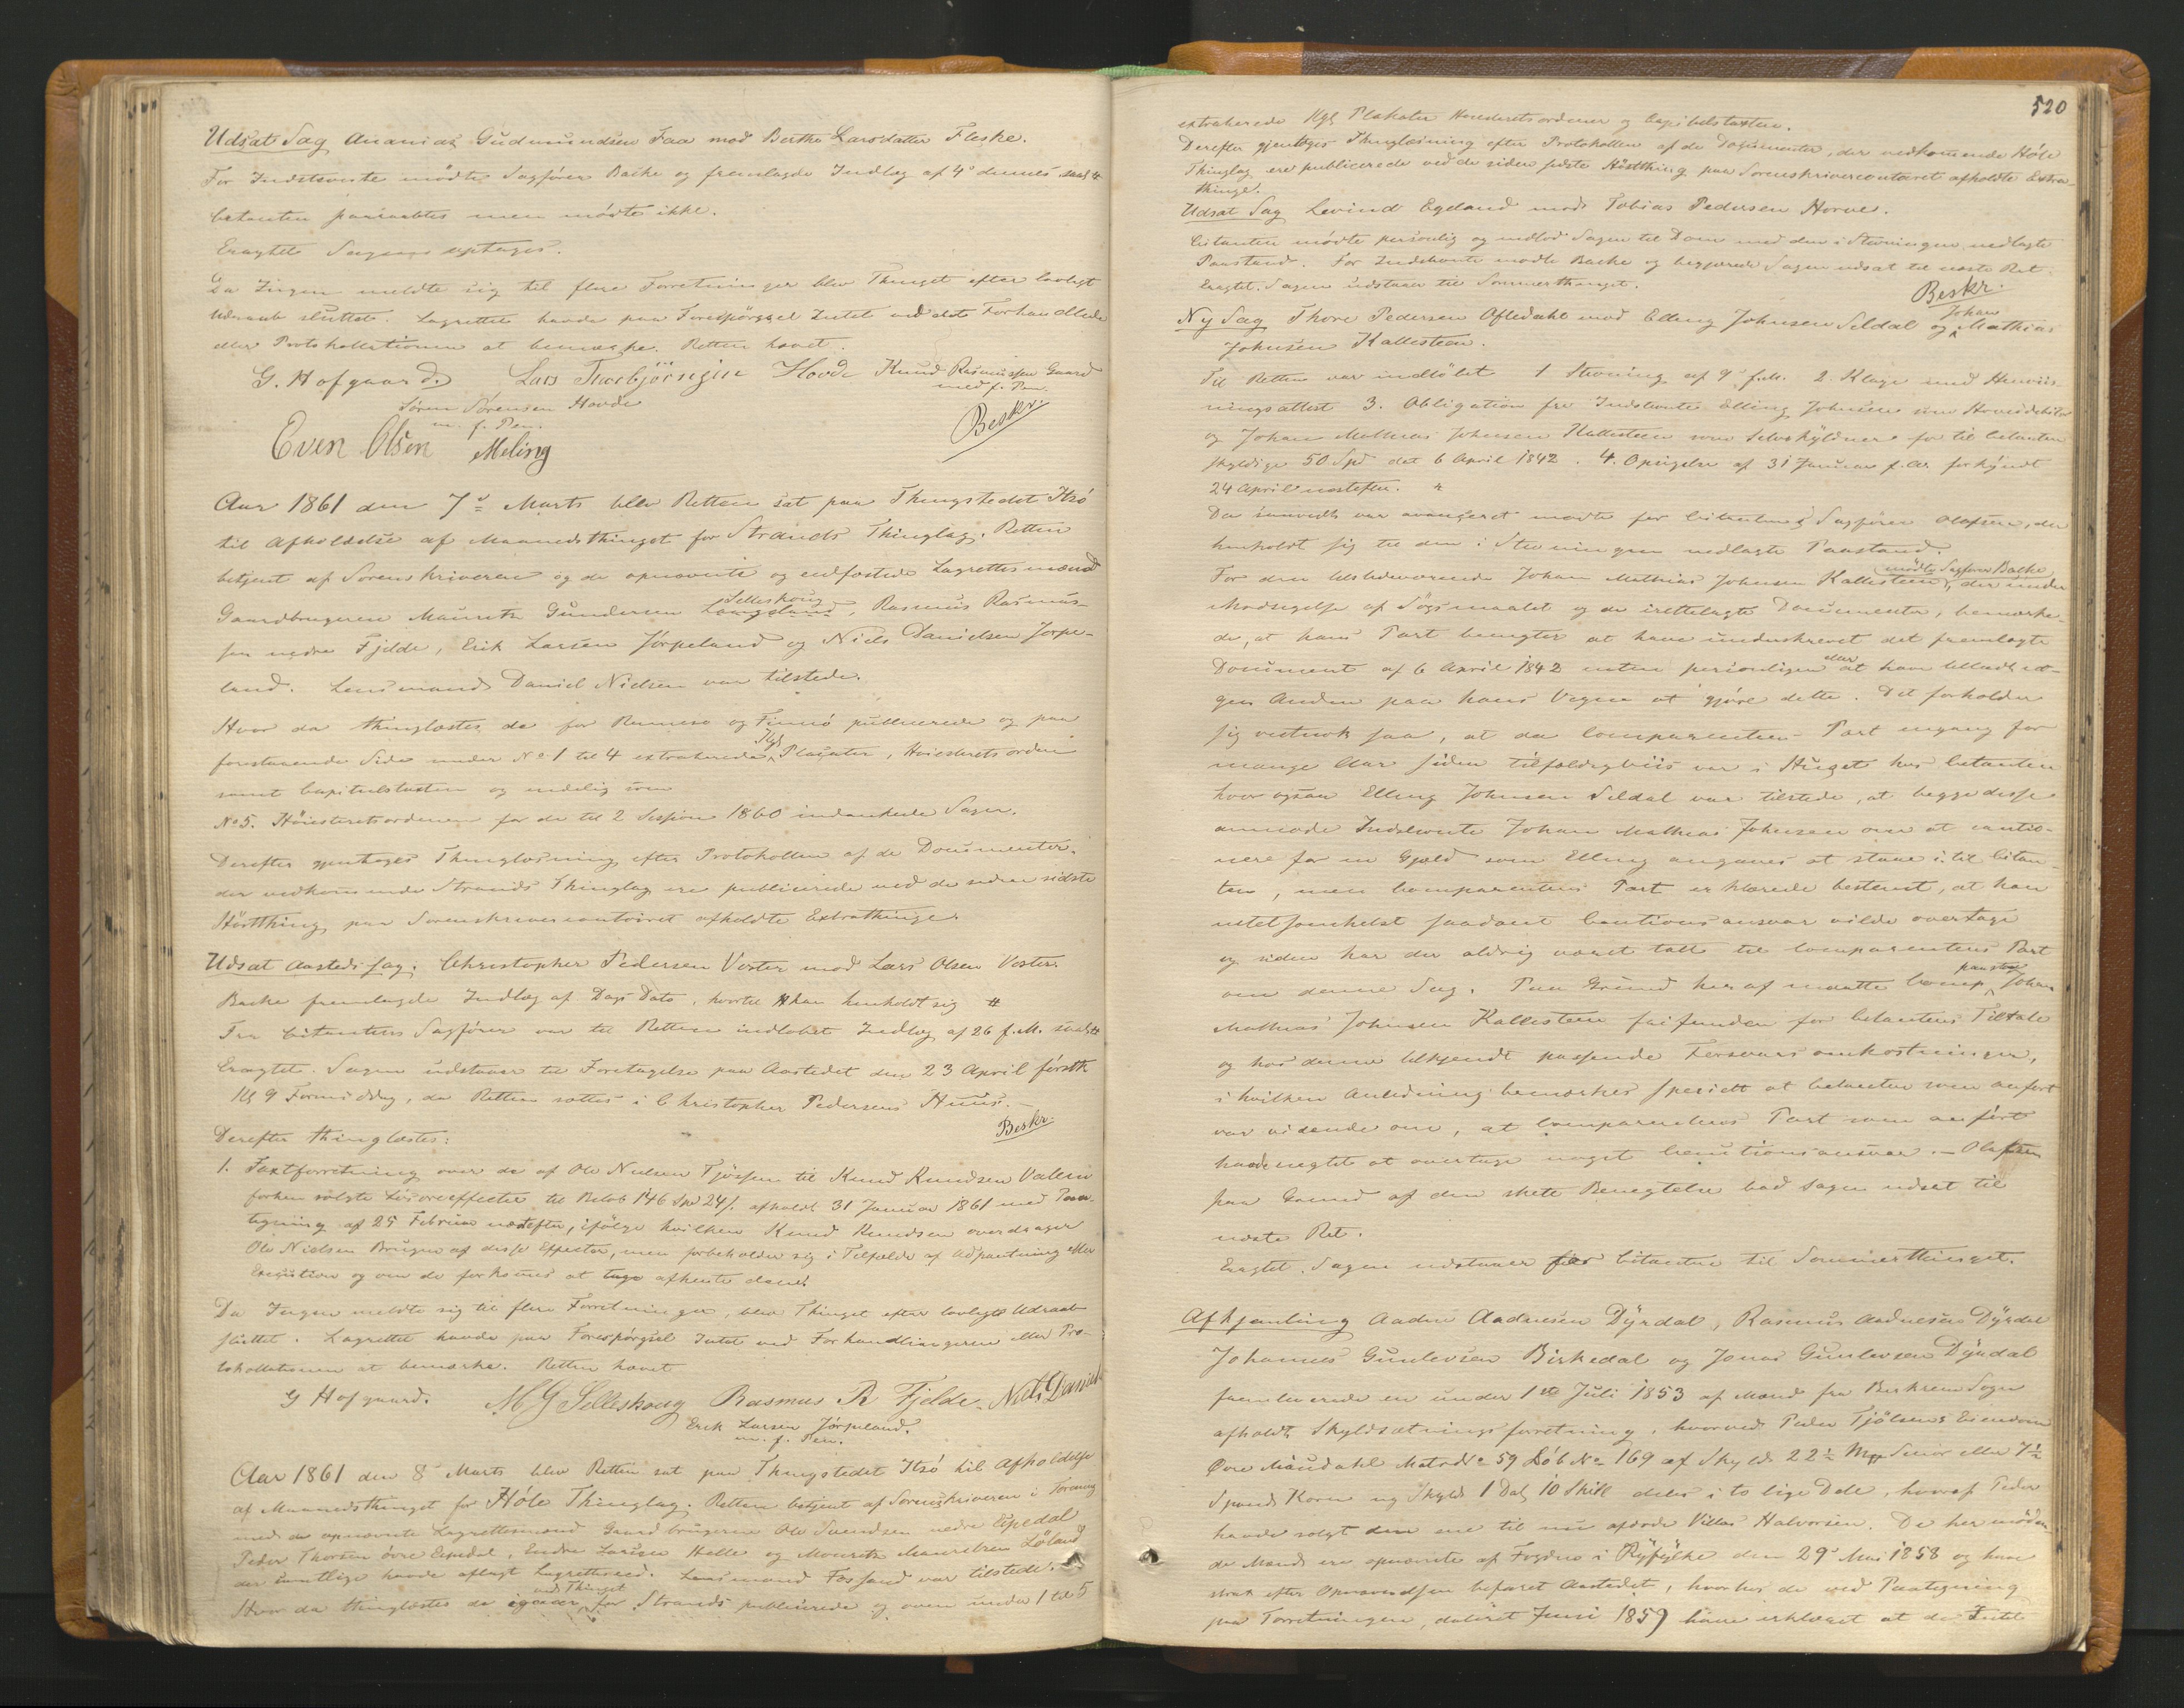 Udsat Sag Ananias Gudmundsen Faa mod Berthe Larsdatter Fleske.
For Indstevnte mödte Sagförer Backe og fremlagde Indlæg af 4de dennes saal #
Citanten paaraabtes men mödte ikke.
Eragtet Sagen optages.
Da Ingen meldte sig til flere Forretninger blev Thinget efter lovligt
Udraab sluttet. Lagrettet havde paa Forespörgsel Intet ved det Forhandlede
eller Protokollationen at bemærke. Retten hævet.
G. Hofgaard. Lars Thorbjörnsen Hovde Knud Rasmussen Gaard
med f. Pen.
Sören Sörensen Hovde
m. f. Pen.
Beskr.
Even Olsen Meling
Aar 1861 den 7de Marts blev Retten sat paa Thingstedet Itsö
til Afholdelse af Maanedsthinget for Strands Thinglag. Retten
betjent af Sorenskriveren og de opnævnte og edfæstede Lagrettesmænd
Gaardbrugerne Mauritz Gundersen Langeland Selleskoug, Rasmus Rasmus-
sen nedre Fjelde, Erik Larsen Jörpeland og Niels Danielsen Jörpe-
land. Lensmand Daniel Nielsen var tilstede.
Hvor da thinglæstes de for Rennesö og Finnö publicerede og paa
forestaaende Side under No 1 til 4 extraherede Kgl Placater, Höiesteretsorden
samt Capitelstaxten og endelig som
No 5. Höiesteretsordenen for de til 2 Session 1860 indankede Sager.
Derefter gjentoges Thinglæsning efter Protokollen af de Documenter,
der vedkommende Strands Thinglag ere publicerede ved de siden sidste
Höstthing paa Sorenskrivercontoiret afholdte Extrathinge.
Udsat Aasteds Sag. Christopher Pedersen Voster mod Lars Olsen Voster.
Backe fremlagde Indlæg af Dags Dato, hvortil han henholdt sig #
Fra Citantens Sagförer var til Retten indlöbet Indlæg af 26 f.M. saal #
Eragtet. Sagen udstaaer til Foretagelse paa Aastedet den 23 April förstk
Kl 9 Formiddag, da Retten sættes i Christopher Pedersens Huus.
Beskr.
Derefter thinglæstes:
1. Taxtforretning over de af Ole Nielsen Tjössem til Knud Knudsen Valem
forhen solgte Lösöreeffecter til Belöb 146 Spd 24 s. afholdt 31 Januar 1861 med Paa-
tegning af 25 Februar næstefter, ifölge hvilken Knud Knudsen overdrager
Ole Nielsen Brugen af disse Effecter, men forbeholder sig i Tilfælde af Udpantning eller
Execution og om de forkomes at tage afhente denne.
Da Ingen meldte sig til flere Forretninger, blev Thinget efter lovligt Udraab
sluttet. Lagrettet havde paa Forespörgsel Intet ved Forhandlingerne eller Pro-
tokollationen at bemærke. Retten hævet
G Hofgaard. M G Selleskoug Rasmus R Fjelde. Niels Daniels
Erik Larsen Jörpeland.
m. f. Pen.
Aar 1861 den 8de Marts blev Retten sat paa Thingstedet Itsö til Afholdelse
af Maanedsthinget for Höle Thinglag. Retten betjent af Sorenskriveren i Forening
med de opnævnte Lagrettesmænd Gaardbrugerne Ole Svendsen nedre Espedal
Peder Thorsen övre Espedal, Endre Larsen Helle og Mouritz Mauritzen Löland
der samtlige havde aflagt Lagretteseed. Lensmand Fossand var tilstede.
Hvor da thinglæstes de igaaer ved Thinget for Strands publicerede og oven under 1 til 5
520
extraherede Kgl Plakater Höiesteretsordener og Capitelstaxten.
Derefter gjentoges Thinglæsning efter Protokollen af de Documenter, der vedkommende Höle
Thinglag ere publicerede ved de siden sidste Höstthing paa Sorenskrivercontoiret afholdte Extra-
thinge.
Udsat Sag Levind Egeland mod Tobias Pedersen Horve.
Citanten mödte personlig og indlod Sagen til Dom med den i Stevningen nedlagte
Paastand. For Indstevnte mödte Backe og begjærede Sagen udsat til næste Ret.
Eragtet. Sagen udstaaer til Sommerthinget.
Beskr.
Ny Sag Thore Pedersen Ofledahl mod Elling Johnsen Seldal og Johan Mathias
Johnsen Kallesteen.
Til Retten var indlöbet 1 Stevning af 9de f.M. 2. Klage med Henviis-
ningsattest 3. Obligation fra Indstevnte Elling Johnsen som Hoveddebitor
og Johan Mathias Johnsen Kallesteen som Selvskyldner for til Citanten
skyldige 50 Spd dat 6 April 1842. 4. Opsigelse af 31 Januar f. A. forkyndt
24 April næstefter. #
Da saavidt var avanceret mödte for Citanten Sagförer Olafsen, der
henholdt sig til den i Stevningen nedlagte Paastand.
For den tilstedeværende Johan Mathias Johnsen Kallesteen mödte Sagförer Backe, der under
Modsigelse af Sögsmaalet og de irettelagte Documenter, bemærke-
de, at hans Part benegter at have underskrevet det fremlagte
Document af 6 April 1842 enten personligen eller at have tilladt no-
gen Anden paa hans Vegne at gjöre dette. Det forholder
sig vistnok saa, at da Comparentens Part engang for
mange Aar siden tilfældigviis var i Huset hos Citanten
hvor ogsaa Elling Johnsen Seldal var tilstede, at begge disse
anmode Indstevnte Johan Mathias Johnsen om at cautio-
nere for en Gjæld som Elling angaves at staae i til Citan-
ten, men Comparentens Part erklærede bestemt, at han
intetsomhelst saadant Cautionsansvar vilde overtage
og siden har der aldrig været talt til Comparentens Part
om denne Sag. Paa Grund heraf maatte Comp. paastaa Johan
Mathias Johnsen Kallesteen frifunden for Citantens Tiltale
og hos denne tilkjendt passende Forsvarsomkostninger,
i hvilken Anledning bemærkes specielt at Citanten som anfört
var vidende om, at Comparentens Part som anfört
havde negtet at overtage noget Cautionsansvar. - Olafsen
paa Grund af den skete Benegtelse bad Sagen udsat til
næste Ret.
Eragtet. Sagen udstaaer for Citanten til Sommerthinget.
Afhjemling Aadne Aadnesen Dyrdal, Rasmus Aadnesen Dyrdal
Johannes Gunlevsen Birkedal og Jonas Gunlevsen Dyrdal
fremleverede en under 1ste Juli 1853 af Mænd fra Birkrem Sogn
afholdt Skyldsætningsforretning, hvorved Peder Tjölsens Eiendom
Övre Maudahl Matr No 59 Löb No 169 af Skyld 22½ Mrk Smör eller 7½
Spand Korn ny Skyld 1 Dal 10 Skill deles i to lige Dele, hvoraf Peder
havde solgt den ene til nu afdöde Villas Halvorsen. De her möden-
de Mænd ere opnævnte af Fogden i Ryfylke den 29de Mai 1858 og have
strax efter Opnævnelsen befaret Aastedet, hvorhos de ved Paategning
paa Forretningen, dateret Juni 1859 have erklæret at de Intet